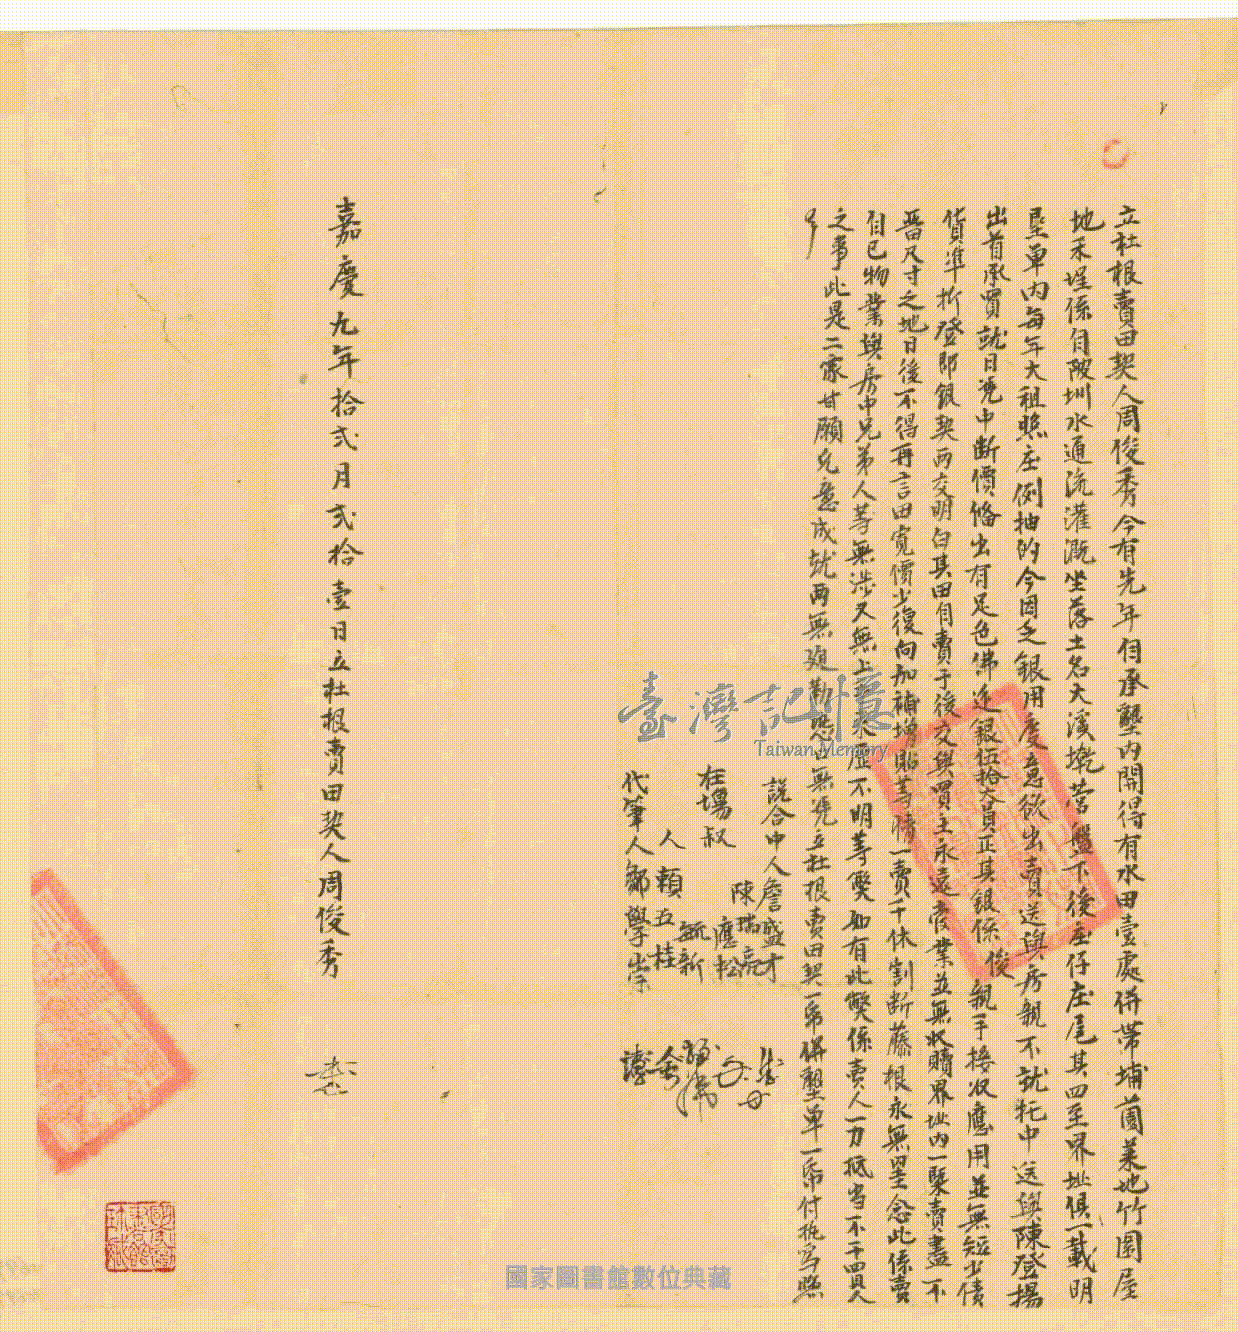 立杜根賣田契人周俊秀今有先年自承墾內開得有水田壹處併帶埔薗菜地竹圍屋
地禾埕係自陂圳水通流灌溉坐落土名大溪墘营盤下後庄仔庄尾其四至界址俱一載明
墾单內每年大祖照庄例抽的今因乏銀用度意欲出賣送與房親不就托中送與陳登揚
出首承買就日凴中断價俻出有足色佛返銀伍拾大員正其銀係俊親手接収應用並無短少債
貨準折登即銀契両交明白其田自賣于後交與買主永遠管業並無収贖界址內一槩賣盡不
畄尺寸之地日後不得再言田寛價少復向加補增貼等情一賣千休割断藤根永無異念此係賣
自己物業與房中兄弟人等無涉又無上手来歷不明等獘如有此獘係賣人一力抵当不干買人
之事此是二家甘願允意成就両無迫勒恐口無凴立杜根賣田契一帋併墾单一帋付执為照
說合中人詹盛才
陳瑞亮
應松
在塲叔
毓新
人賴五桂
代筆人鄒學崇
嘉慶九年拾弍月弍拾壹日立杜根賣田契人周俊秀
臺灣記憶
Taiwan Memory
國家圖書館數位典藏